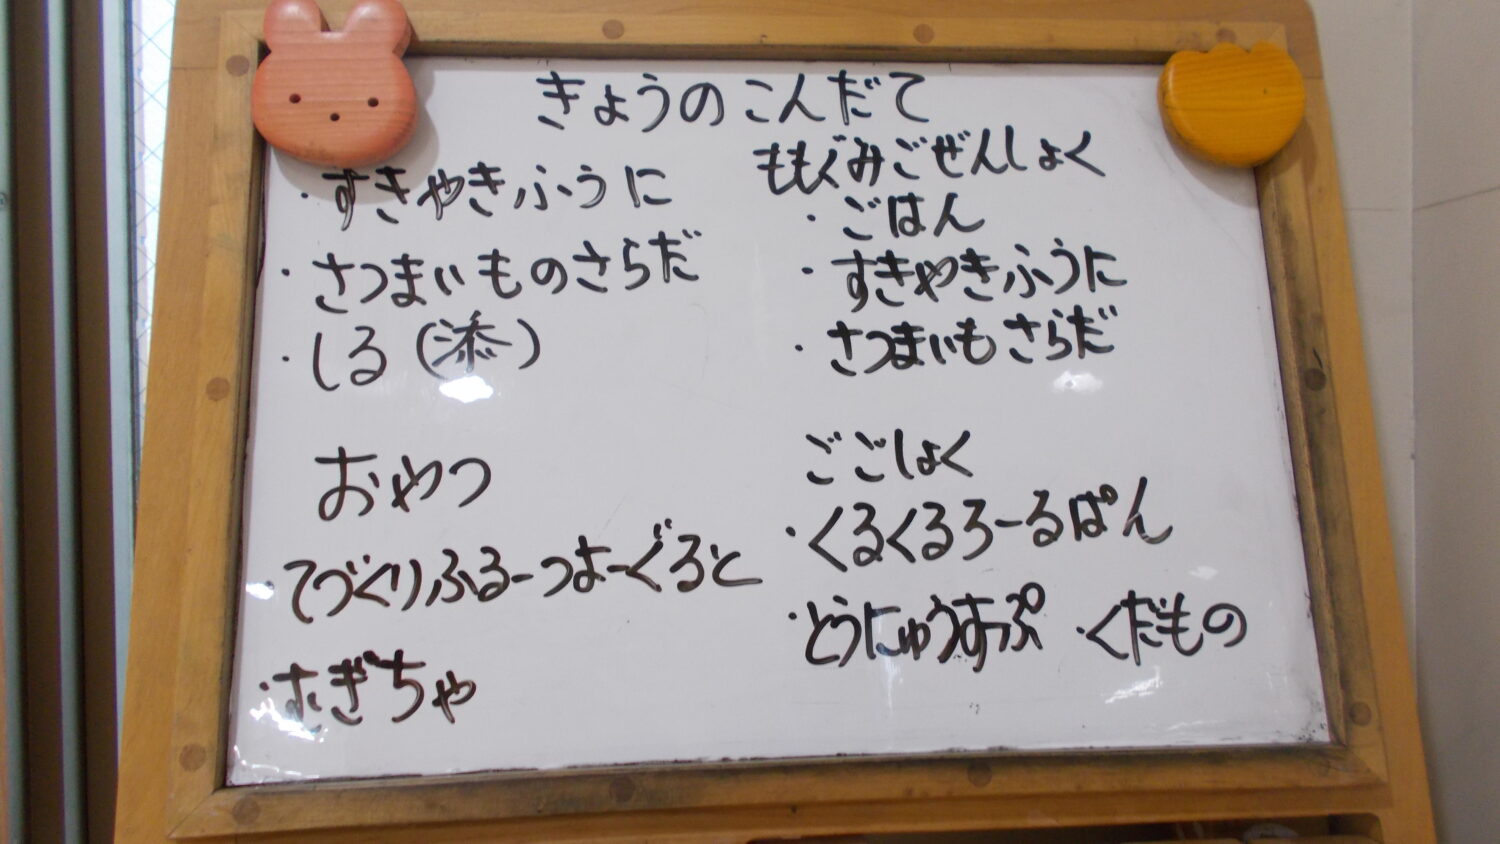 きょうのこんだて
・すきやきふうに
・さつまいものさらだ
・しる(添)
おやつ
・てづくりふるーつよーぐると
・むぎちゃ
ももぐみごぜんしょく
・ごはん
・すきやきふうに
・さつまいもさらだ
ごごしょく
・くるくるろーるぱん
・とうにゅうすーぷ ・くだもの